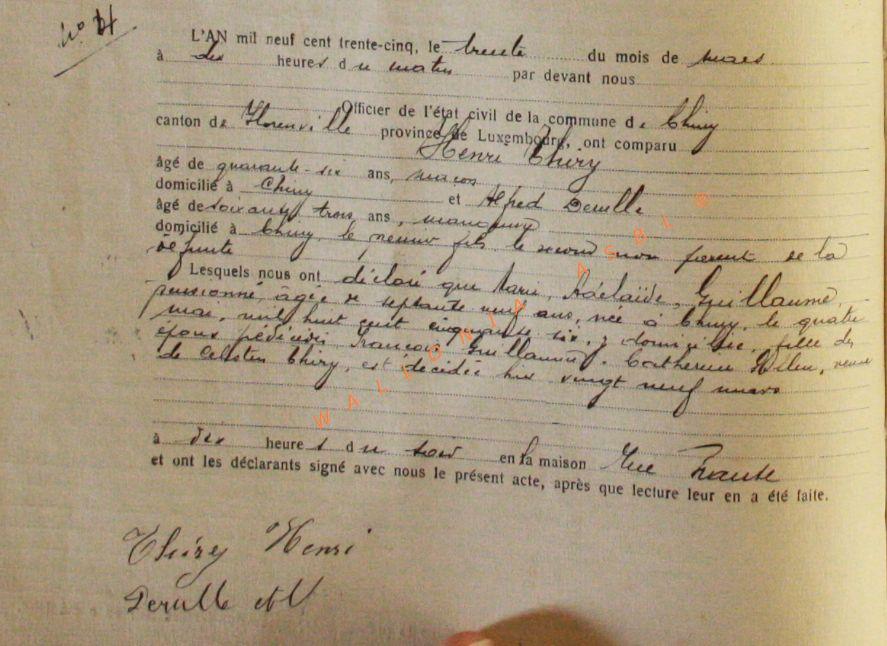 N° 4
L'AN mil neuf cent trente-cinq, le trente du mois de mars
à dix heures du matin par devant nous
Officier de l'état civil de la commune de Chiny
canton de Florenville province de Luxembourg, ont comparu
Henri Thiry
âgé de quarante-six ans, maçon
domicilié à Chiny et Alfred Derulle
âgé de soixante trois ans, manœuvre
domicilié à Chiny, le premier fils le second non parent de la
défunte
Lesquels nous ont déclaré que Marie, Adélaïde, Guillaume,
pensionnée, âgée de septante neuf ans, née à Chiny, le quatre
mai, mil huit cent cinquante six, y domiciliée, fille des
époux prédécédés François Guillaume. Catherine, veuve
de Célestin Thiry, est décédée hier vingt neuf mars
à dix heures du soir en sa maison Rue
et ont les déclarants signé avec nous le présent acte, après que lecture leur en a été faite.
Thiry Henri
Derulle Alf
WALLONIA ASBL ©